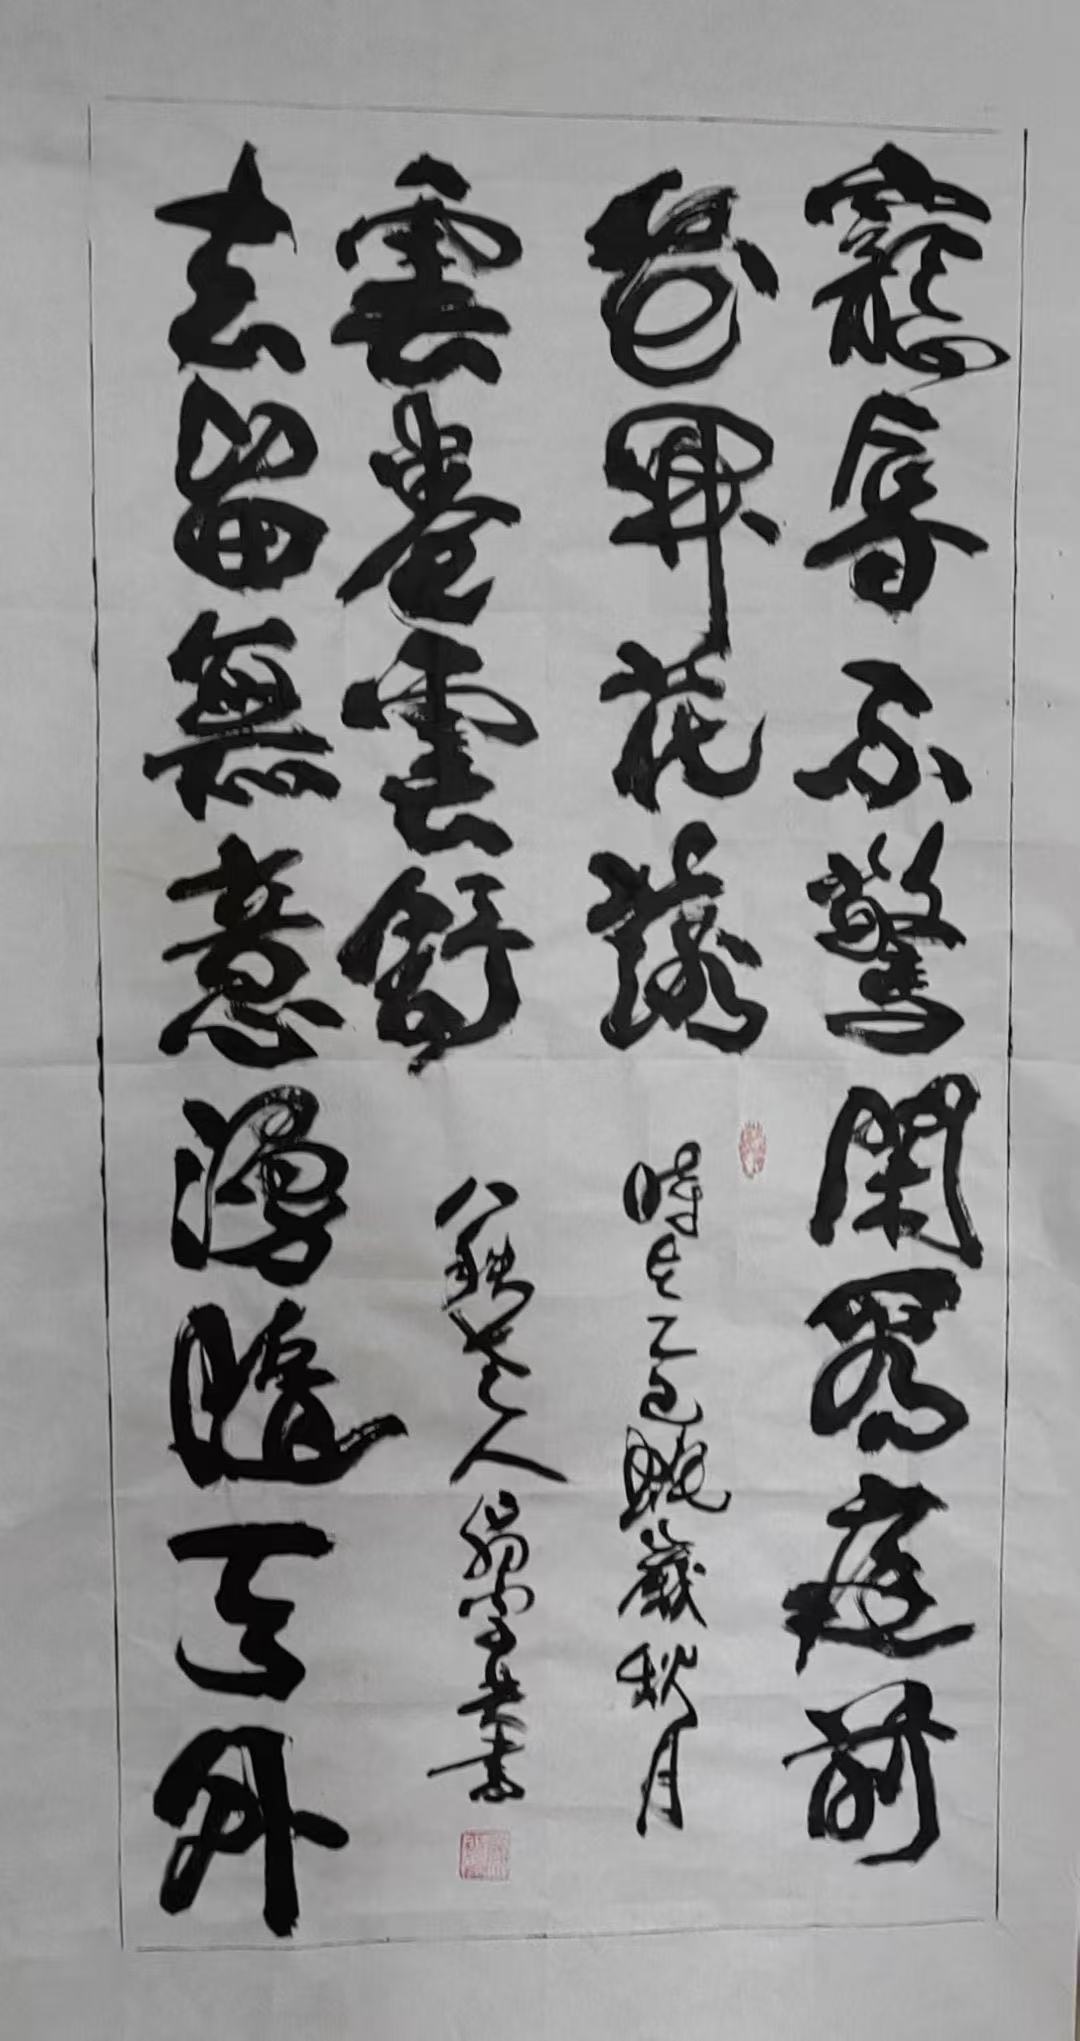 寵辱不驚閑看庭前
花開花落
去留無意漫隨天外
雲卷雲舒
時在乙巳蛇歲秋月
八秩老人書